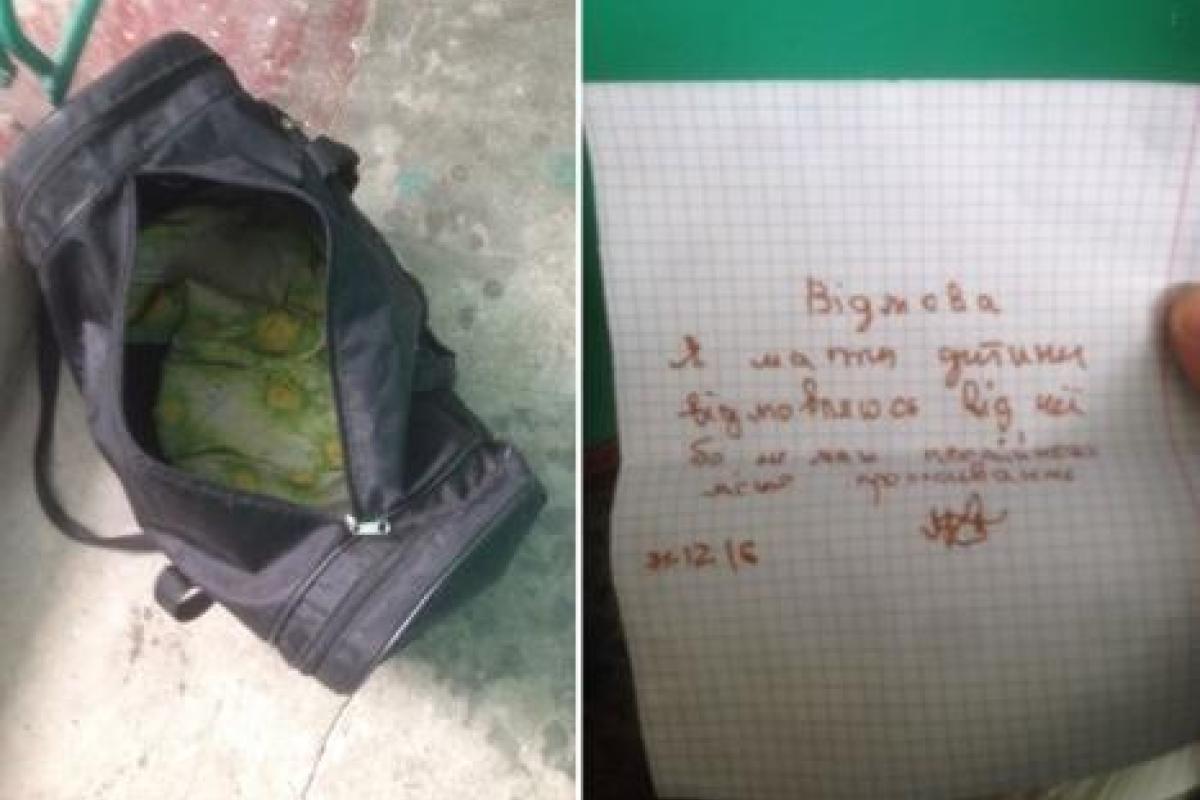 Відмова
Я мати дитини
відмовляюсь від неї
бо не маю постійного
місця проживання
12 16